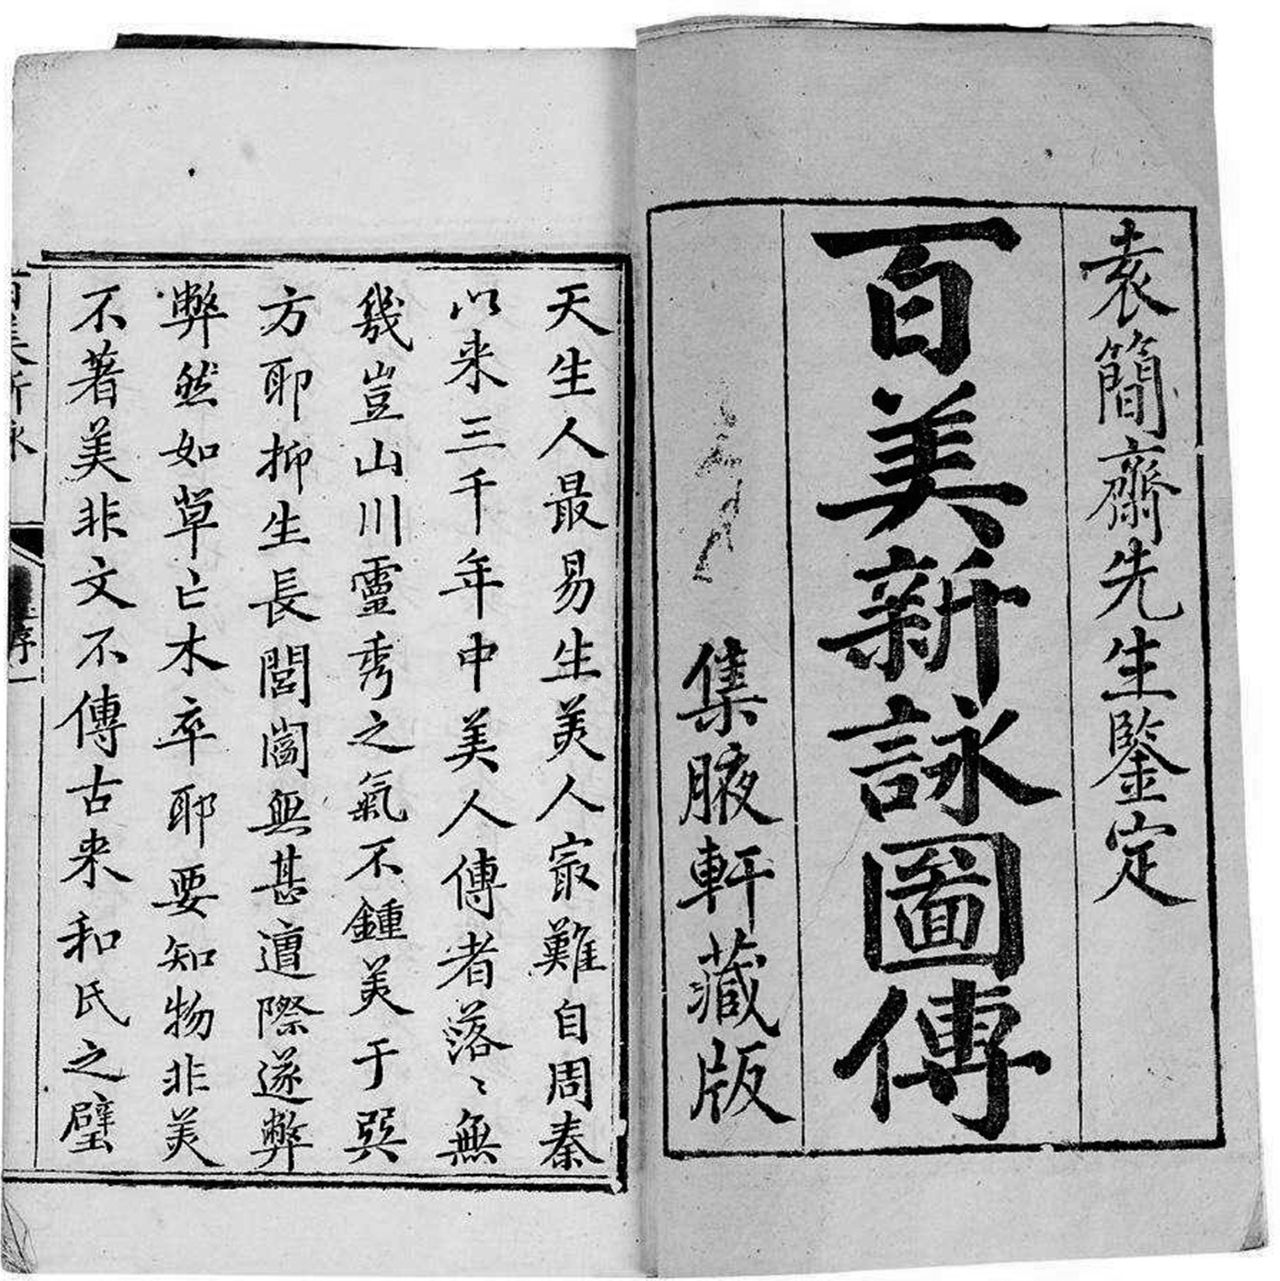 袁簡齋先生鑒定
百美新詠圖傳
集腋軒藏版
天生人最易生美人㝡難自周秦
以来三千年中美人傳者落〻無
幾豈山川靈秀之氣不鍾美于巽
方耶抑生長閭閻無甚遭際遂弊
弊然如草亡木卒耶要知物非美
不著美非文不傳古来和氏之璧
百美新詠
序
一